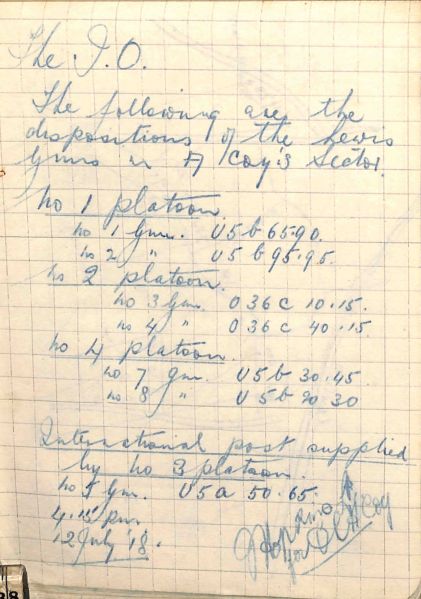 The I.O.
The following are the
dispositions of the Lewis
Guns in A Coy's Sector.
No 1 platoon.
No 1 Gun. U5b 65.90.
No 2 " U5b 95.95.
No 2 platoon.
No 3 Gun. O36c 10.15.
No 4 " O36c 40.15.
No 4 platoon.
No 7 Gun. U5b 30.45
No 8 " U5b 20 30
International post supplied
by No 3 platoon.
No 5 Gun. U5a 50.65.
4.15 pm.
12 July '18.
Coy
for